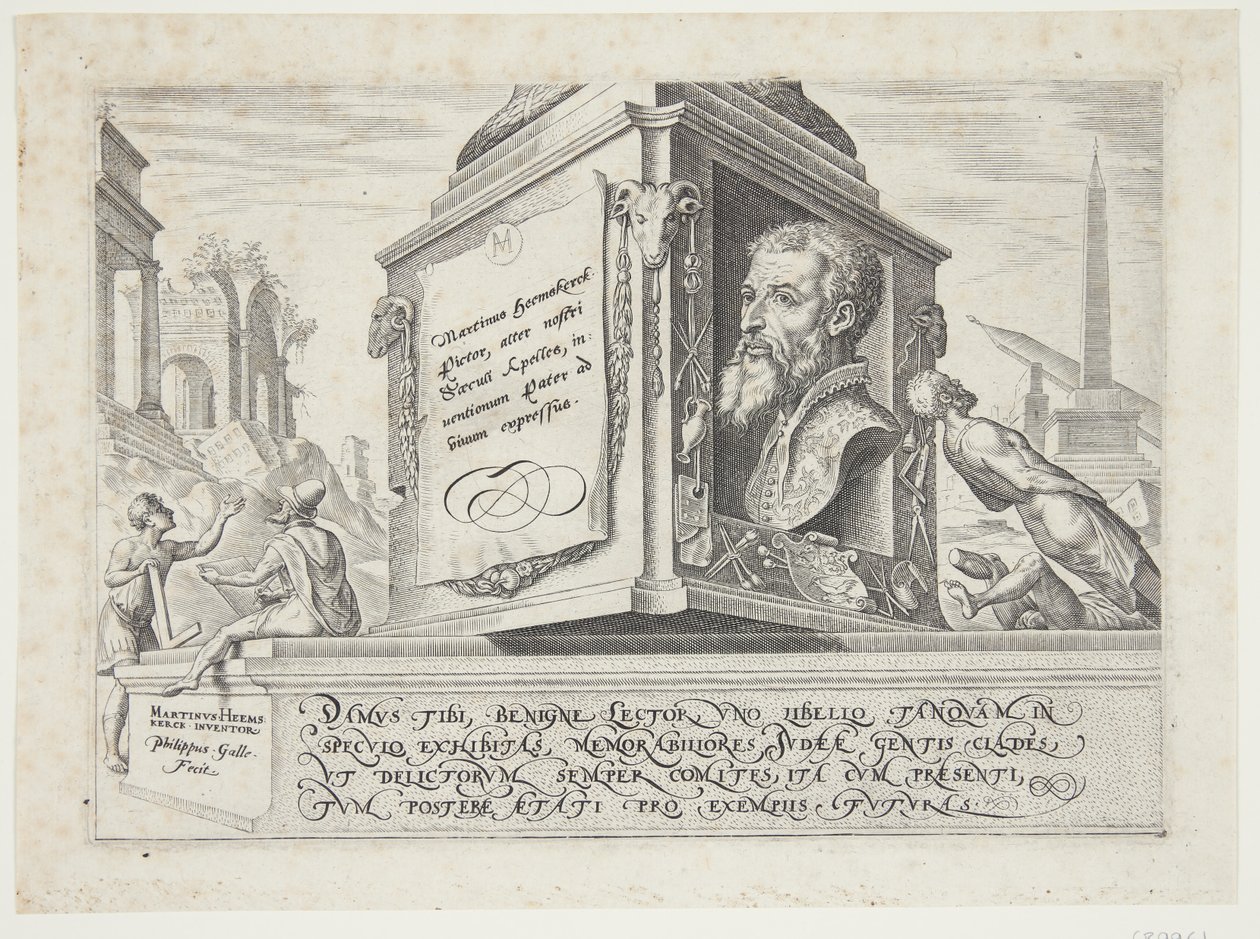 M
Martinus Heemskerck.
Pictor, alter nostri
Sæculi Apelles, in:
uentionum Pater ad
viuum expressus.
MARTINVS·HEEMS:
KERCK·INVENTOR
Philippus·Galle·
Fecit
DAMVS TIBI, BENIGNE LECTOR, VNO LIBELLO TANQVAM IN
SPECVLO EXHIBITAS, MEMORABILIORES JVDÆÆ GENTIS CLADES,
VT DELICTORVM SEMPER COMITES, ITA CVM PRÆSENTI,
TVM POSTERÆ ÆTATI PRO EXEMPLIS FVTVRAS